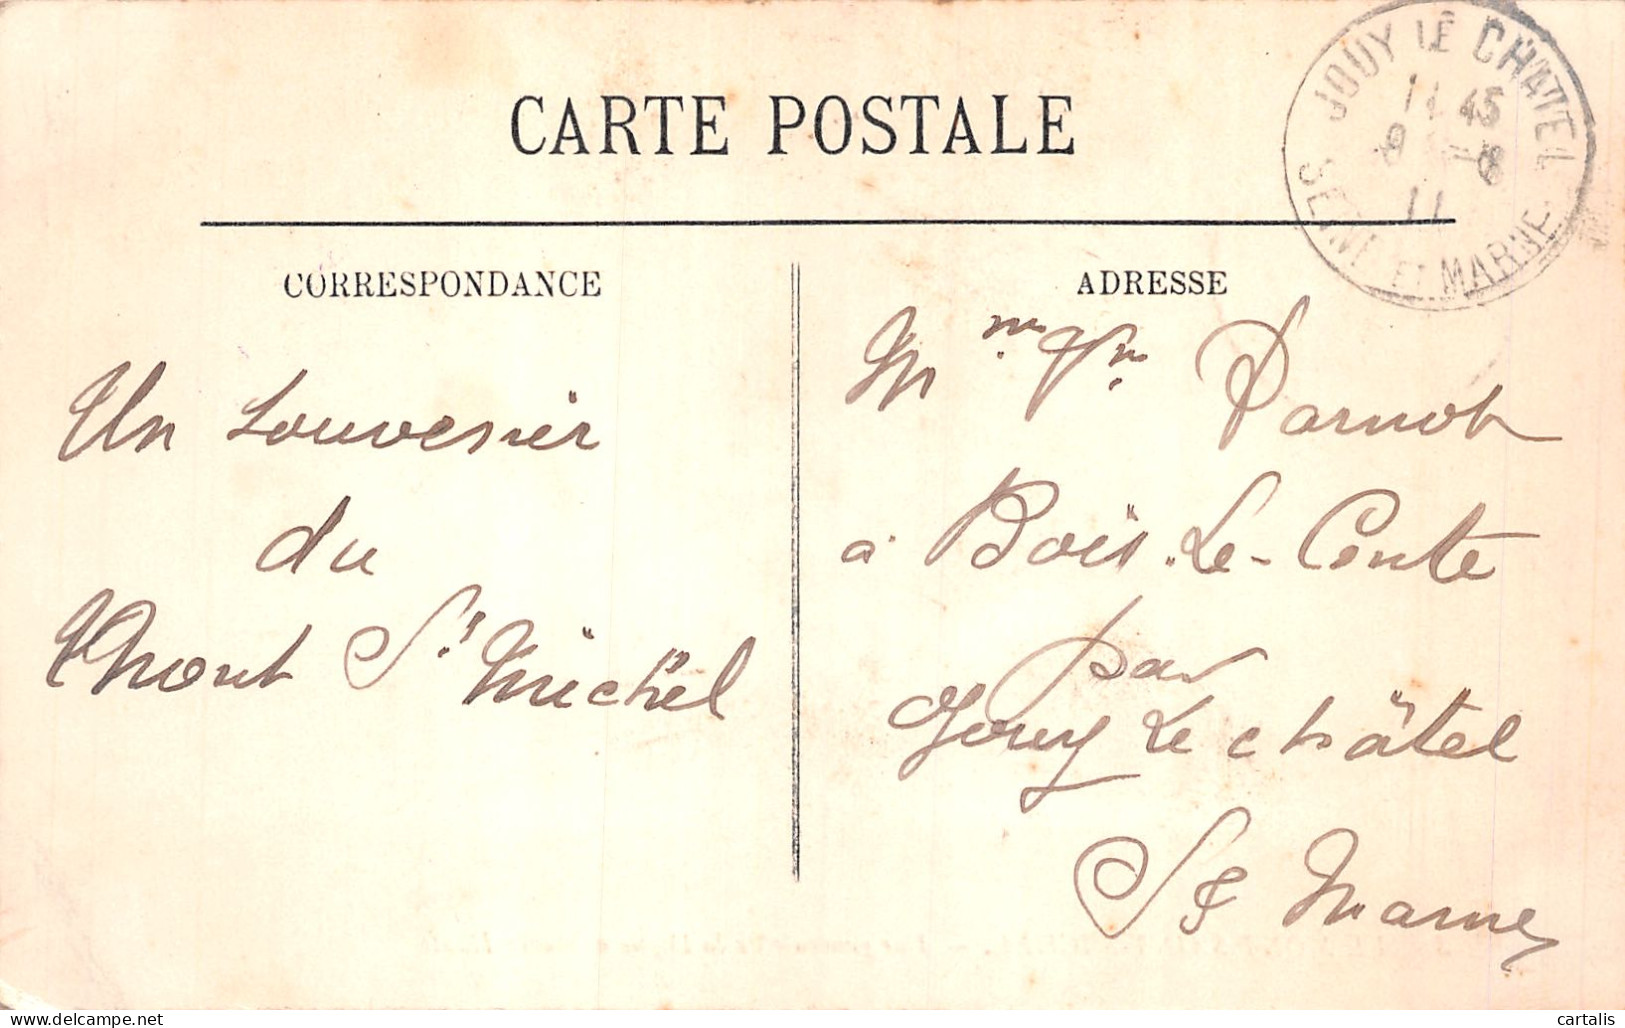 CARTE POSTALE
JOUY LE CHATEL
14 45
9 8
11
SEINE ET MARNE
CORRESPONDANCE
ADRESSE
Un souvenir
du
Mont St Michel
Mme Vve Parnot
à Bois-Le-Comte
par
Jouy Le châtel
S et Marne
cartalis